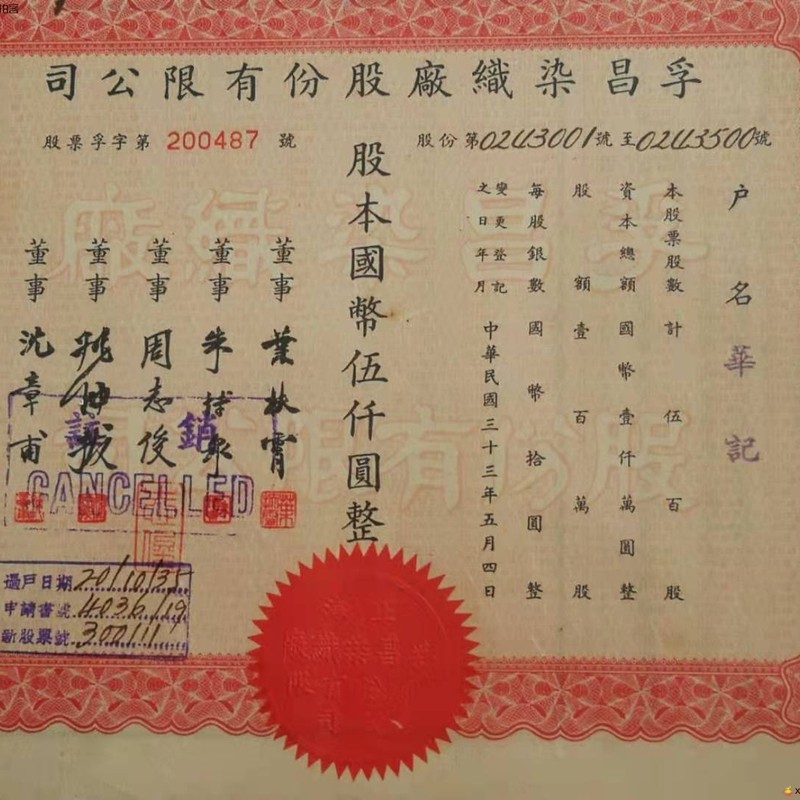 孚昌染織廠股份有限公司
股份第0243001號至0243500號
股票孚字第 200487 號
户名 華記
本股票股數計 伍百股
資本總額國幣壹仟萬圓整
股額壹百萬股
每股銀數國幣拾圓整
變更登記之日年月 中華民國三十三年五月四日
股本國幣伍仟圓整
董事 葉扶霄
董事 朱
董事 周志俊
董事
董事 沈章甫
註銷
CANCELLED
過戶日期 20/10/35
申請書號 4036/19
新股票號 300111